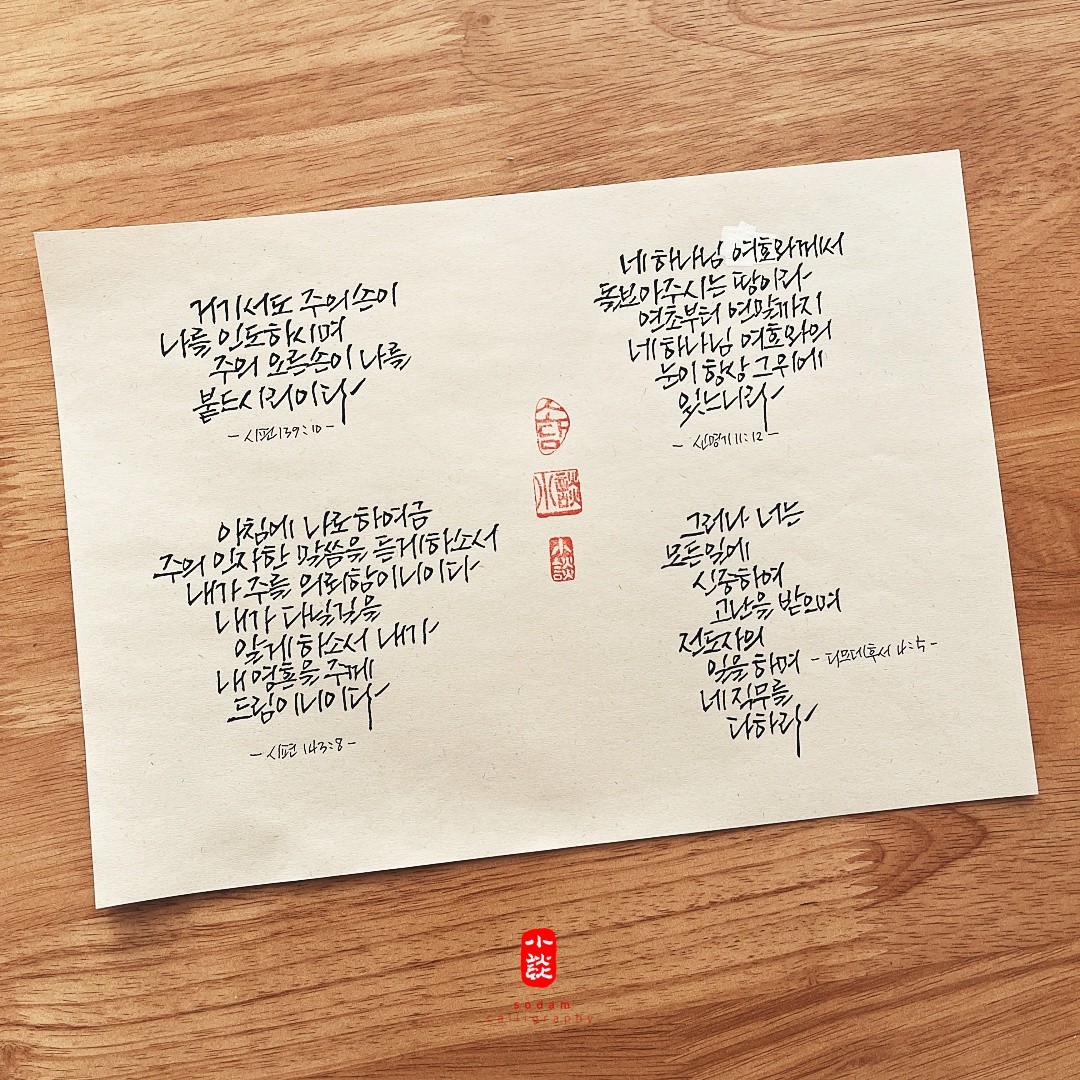 거기서도 주의 손이
나를 인도하시며
주의 오른손이 나를
붙드시리이다
- 시편 139:10 -
네 하나님 여호와께서
돌보아 주시는 땅이라
연초부터 연말까지
네 하나님 여호와의
눈이 항상 그 위에
있느니라
- 신명기 11:12 -
소담
小談
小談
아침에 나로 하여금
주의 인자한 말씀을 듣게 하소서
내가 주를 의뢰함이니이다
내가 다닐 길을
알게 하소서 내가
내 영혼을 주께
드림이니이다
- 시편 143:8 -
그러나 너는
모든 일에
신중하여
고난을 받으며
전도자의
일을 하며 - 디모데후서 4:5 -
네 직무를
다하라
小談
sodam
calligraphy